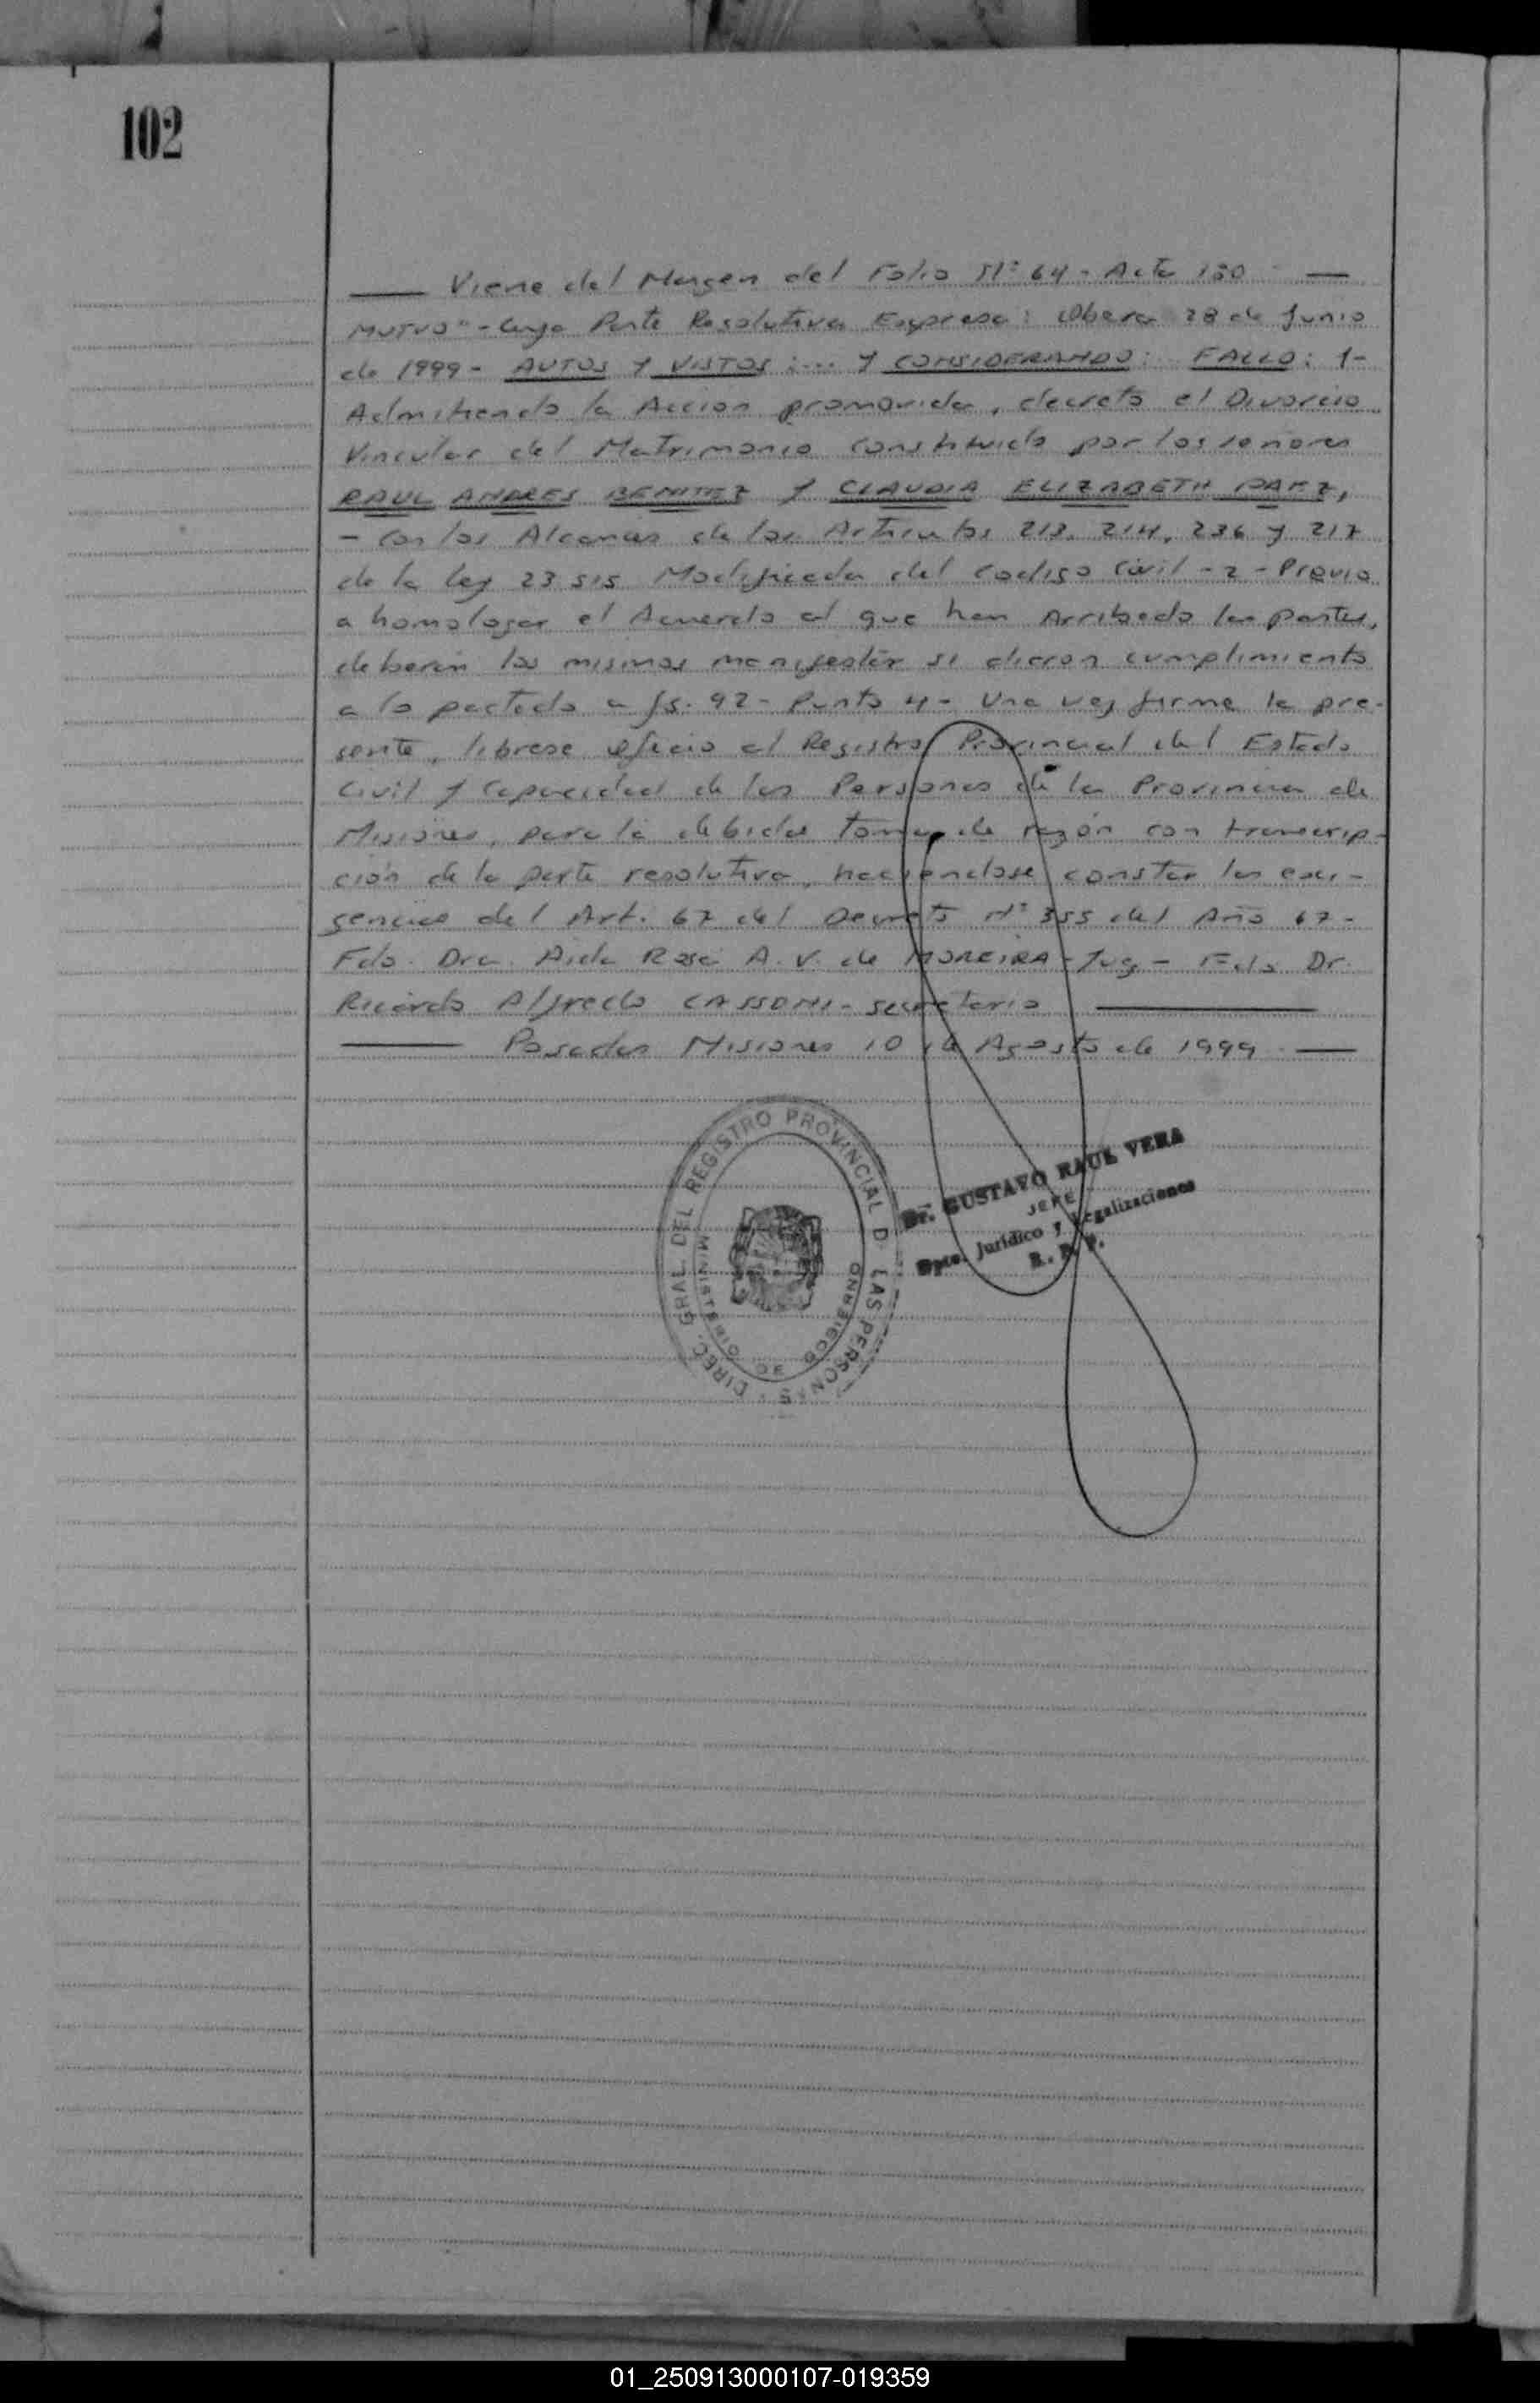 102
Viene del Margen del Folio Nº 64 - Acta 180
MUTUO" - Cuya Parte Resolutiva Expresa: Obera 28 de Junio
de 1999 - AUTOS Y VISTOS:... Y CONSIDERANDO: FALLO: 1-
Admitiendo la Accion promovida, decreto el Divorcio
Vincular del Matrimonio constituido por los señores
RAUL ANDRES BENITEZ Y CLAUDIA ELIZABETH PAEZ,
- con los Alcances de los Articulos 213, 214, 236 y 217
de la ley 23.515 Modificada del Codigo Civil - 2 - Previo
a homologar el Acuerdo al que han Arribado las partes,
deberán los mismos manifestar si dieron cumplimiento
a lo pactado a fs. 92 - Punto 4 - Una vez firme la pre-
sente, librese oficio al Registro Provincial del Estado
Civil y Capacidad de las Personas de la Provincia de
Misiones, para la debida toma de razón con transcrip-
ción de la parte resolutiva, haciendose constar las exi-
gencias del Art. 67 del Decreto Nº 355 del Año 67 -
Fdo. Dra. Aida Rosa A. V. de MOREIRA - Juez - Fdo Dr.
Ricardo Alfredo CASSONI - secretario
Posadas Misiones 10 de Agosto de 1999
DIREC. GRAL. DEL REGISTRO PROVINCIAL D LAS PERSONAS
MINISTERIO DE GOBIERNO
Dr. GUSTAVO RAUL VERA
JEFE
Dpto. Jurídico y Legalizaciones
R. P. P.
01_250913000107-019359